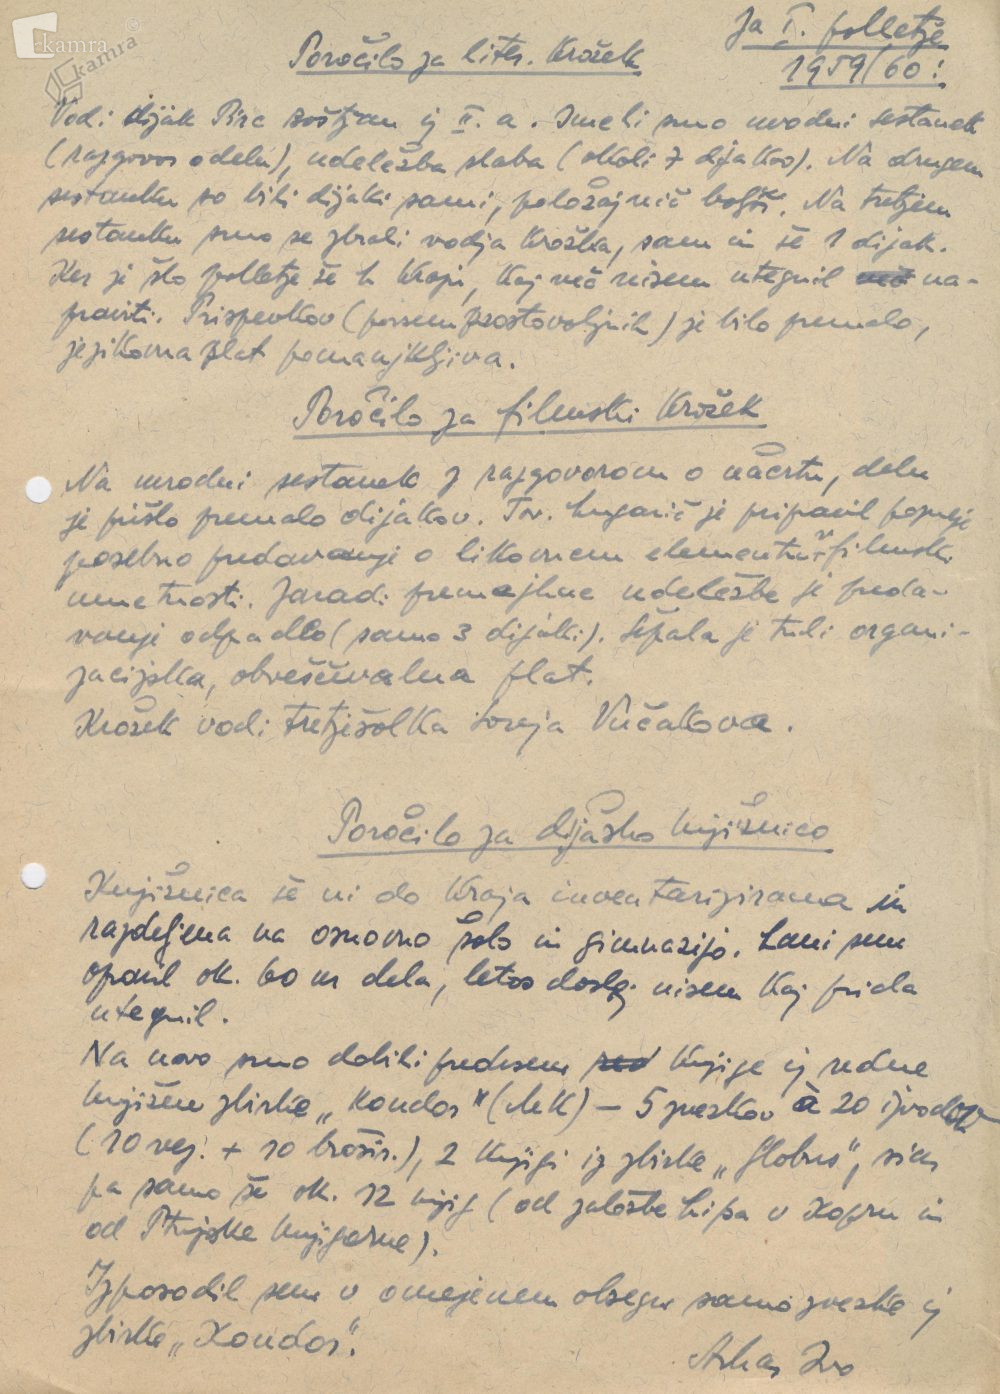 kamra
kamra
Za I. polletje
1959/60!
Poročilo za liter. krožek
Vodi dijak Birc Boštjan iz II. a. Imeli smo uvodni sestanek
(razgovor o delu), udeležba slaba (okoli 7 dijakov). Na drugem
sestanku so bili dijaki sami, položaj nič boljši. Na tretjem
sestanku smo se zbrali vodja krožka, sam in še 1 dijak.
Ker je šlo polletje že h kraju, kaj več nisem utegnil več na-
praviti. Prispevkov (povsem prostovoljnih) je bilo premalo,
jezikovna plat pomanjkljiva.
Poročilo za filmski krožek
Na uvodni sestanek z razgovorom o načrtu, delu
je prišlo premalo dijakov. Tov. Lugarič je pripravil pozneje
posebno predavanje o likovnem elementu v filmski
umetnosti. Zaradi premajhne udeležbe je preda-
vanje odpadlo (samo 3 dijaki). Šepala je tudi organi-
zacijska, obveščevalna plat.
Krožek vodi tretješolka Vučakova.
Poročilo za dijaško knjižnico
Knjižnica še ni do kraja inventarizirana in
razdeljena na osnovno šolo in gimnazijo. Lani sem
opravil ok. 60 ur dela, letos doslej nisem kaj prida
utegnil.
Na novo smo dobili predvsem knjige iz redne
knjižne zbirke „Kondor" (MK) – 5 zvezkov à 20 izvodov
(10 vez. + 10 brošir.), 2 knjigi iz zbirke „Globus", sicer
pa samo še ok. 12 knjig (od založbe Lipa v Kopru in
od Ptujske knjigarne).
Izposodil sem v omejenem obsegu samo zvezke iz
zbirke „Kondor".
Arhar Ivo